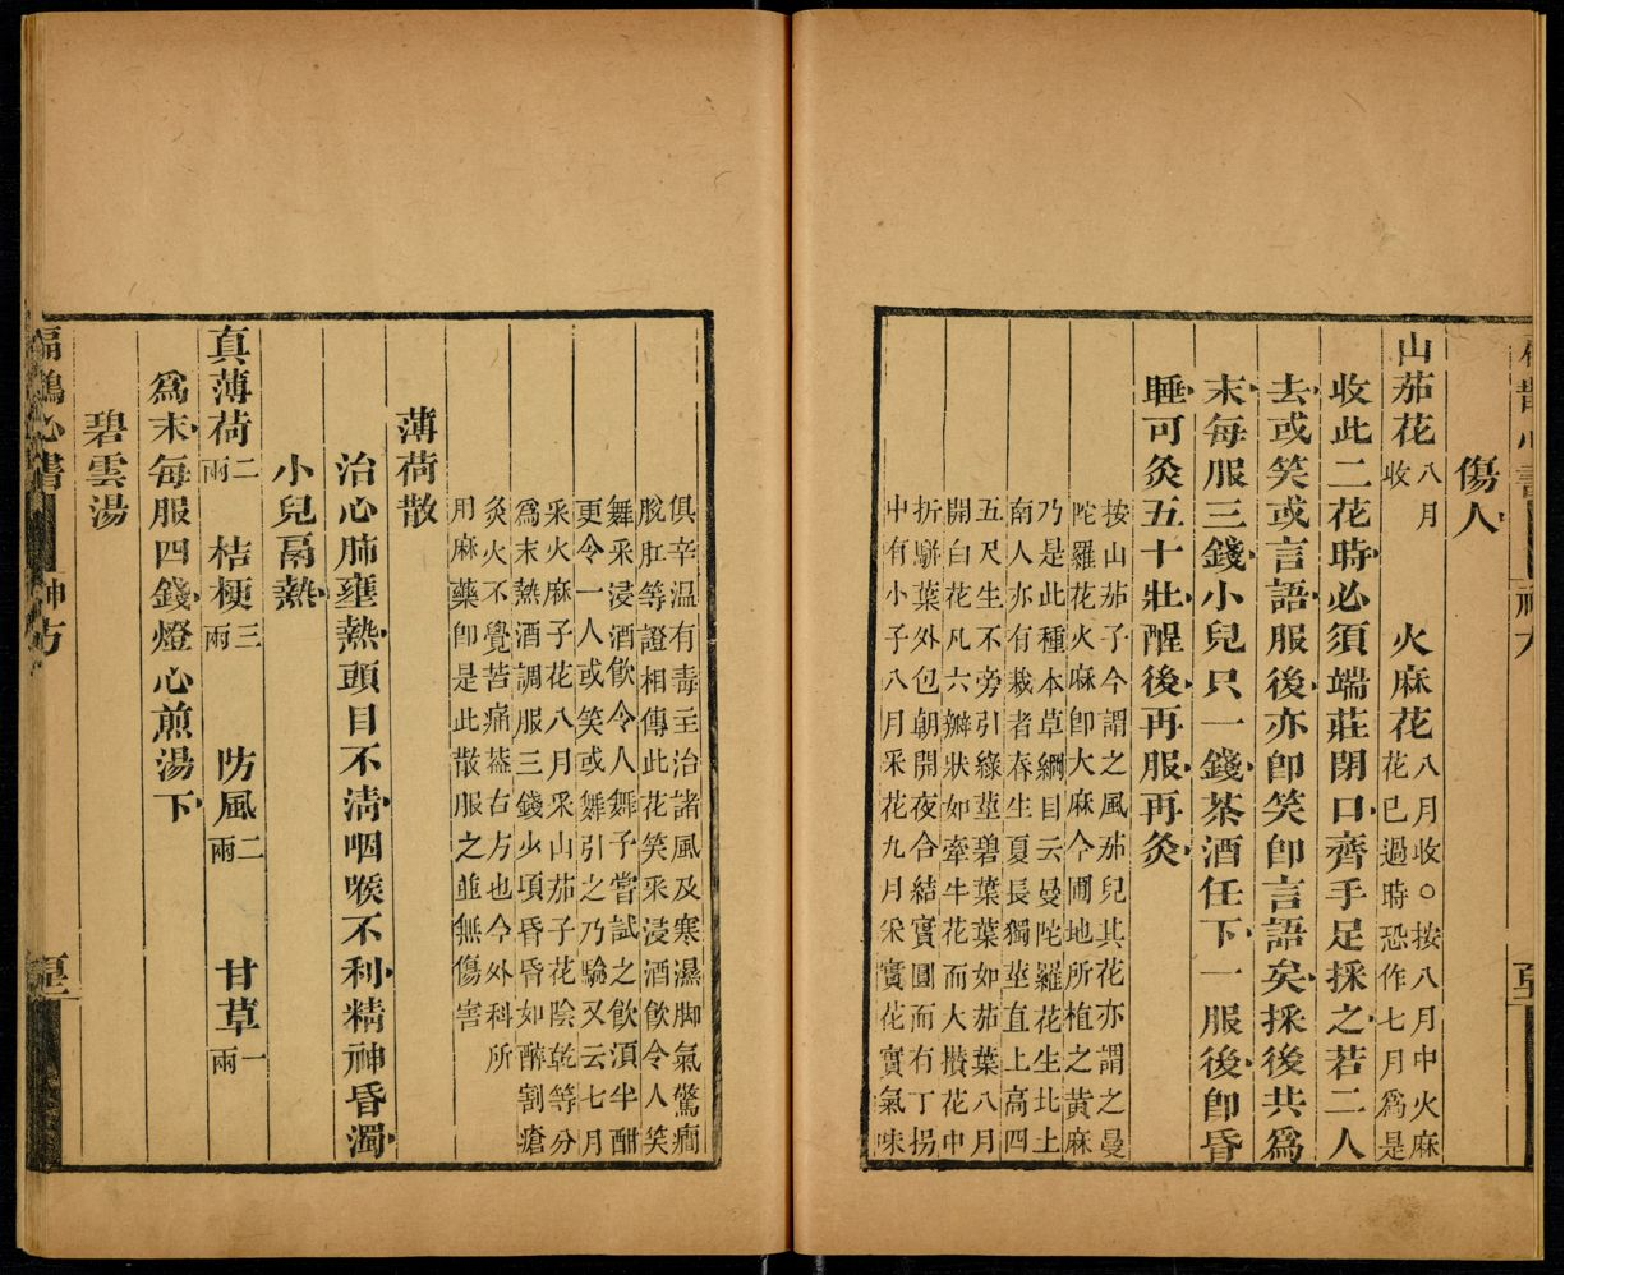 傷人
山茄花 八月
收
火麻花 八月收○按八月中火麻
花已過時恐作七月爲是
收此二花時必須端莊閉口齊手足採之若二人
去或笑或言語服後亦卽笑卽言語矣採後共爲
末每服三錢小兒只一錢茶酒任下一服後卽昏
睡可灸五十壯醒後再服再灸
按山茄子今謂之風茄兒其花亦謂之曼
陀羅花火麻卽大麻今圃地所植之黄麻
乃是此種本草綱目云曼陀羅花生北土
南人亦有栽者春生夏長獨莖直上高四
五尺生不旁引綠莖碧葉葉如茄葉八月
開白花凡六瓣狀如牽牛花而大攅花中
折騈葉外包朝開夜合結實圓而有丁拐
中有小子八月采花九月采實花實氣味
俱辛温有毒主治諸風及寒濕脚氣驚癇
脫肛等證相傳此花笑采浸酒飲令人笑
舞采浸酒飲令人舞予嘗試之飲湏半酣
更令一人或笑或舞引之乃驗又云七月
采火麻子花八月采山茄子花陰乾等分
爲末熱酒調服三錢少項昏昏如醉割瘡
灸火不覺苦痛葢古方也今外科所
用麻藥卽是此散服之並無傷害
薄荷散
治心肺壅熱頭目不清咽喉不利精神昏濁
小兒鬲熱
真薄荷二兩 桔梗三兩 防風二兩 甘草一兩
爲末每服四錢燈心煎湯下
碧雲湯
扁鵲心書 神方